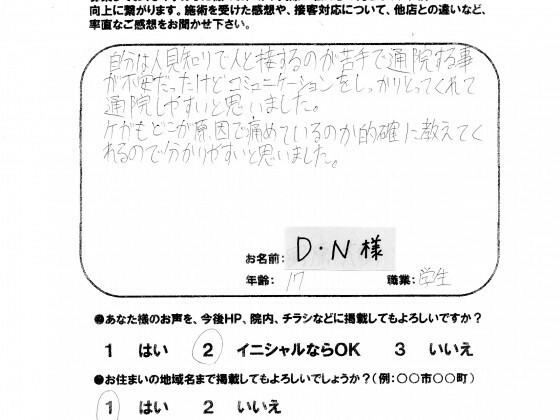 向上に繋がります。施術を受けた感想や、接客対応について、他店との違いなど、
率直なご感想をお聞かせ下さい。
自分は人見知りで人と接するのが苦手で通院する事
が不安だったけどコミュニケーションをしっかりとってくれて
通院しやすいと思いました。
ケガもどこが原因で痛めているのか的確に教えてく
れるので分かりやすいと思いました。
お名前: D・N様
年齢: 17 職業: 学生
●あなた様のお声を、今後HP、院内、チラシなどに掲載してもよろしいですか?
1 はい 2 イニシャルならOK 3 いいえ
●お住まいの地域名まで掲載してもよろしいでしょうか?(例:〇〇市〇〇町)
1 はい 2 いいえ